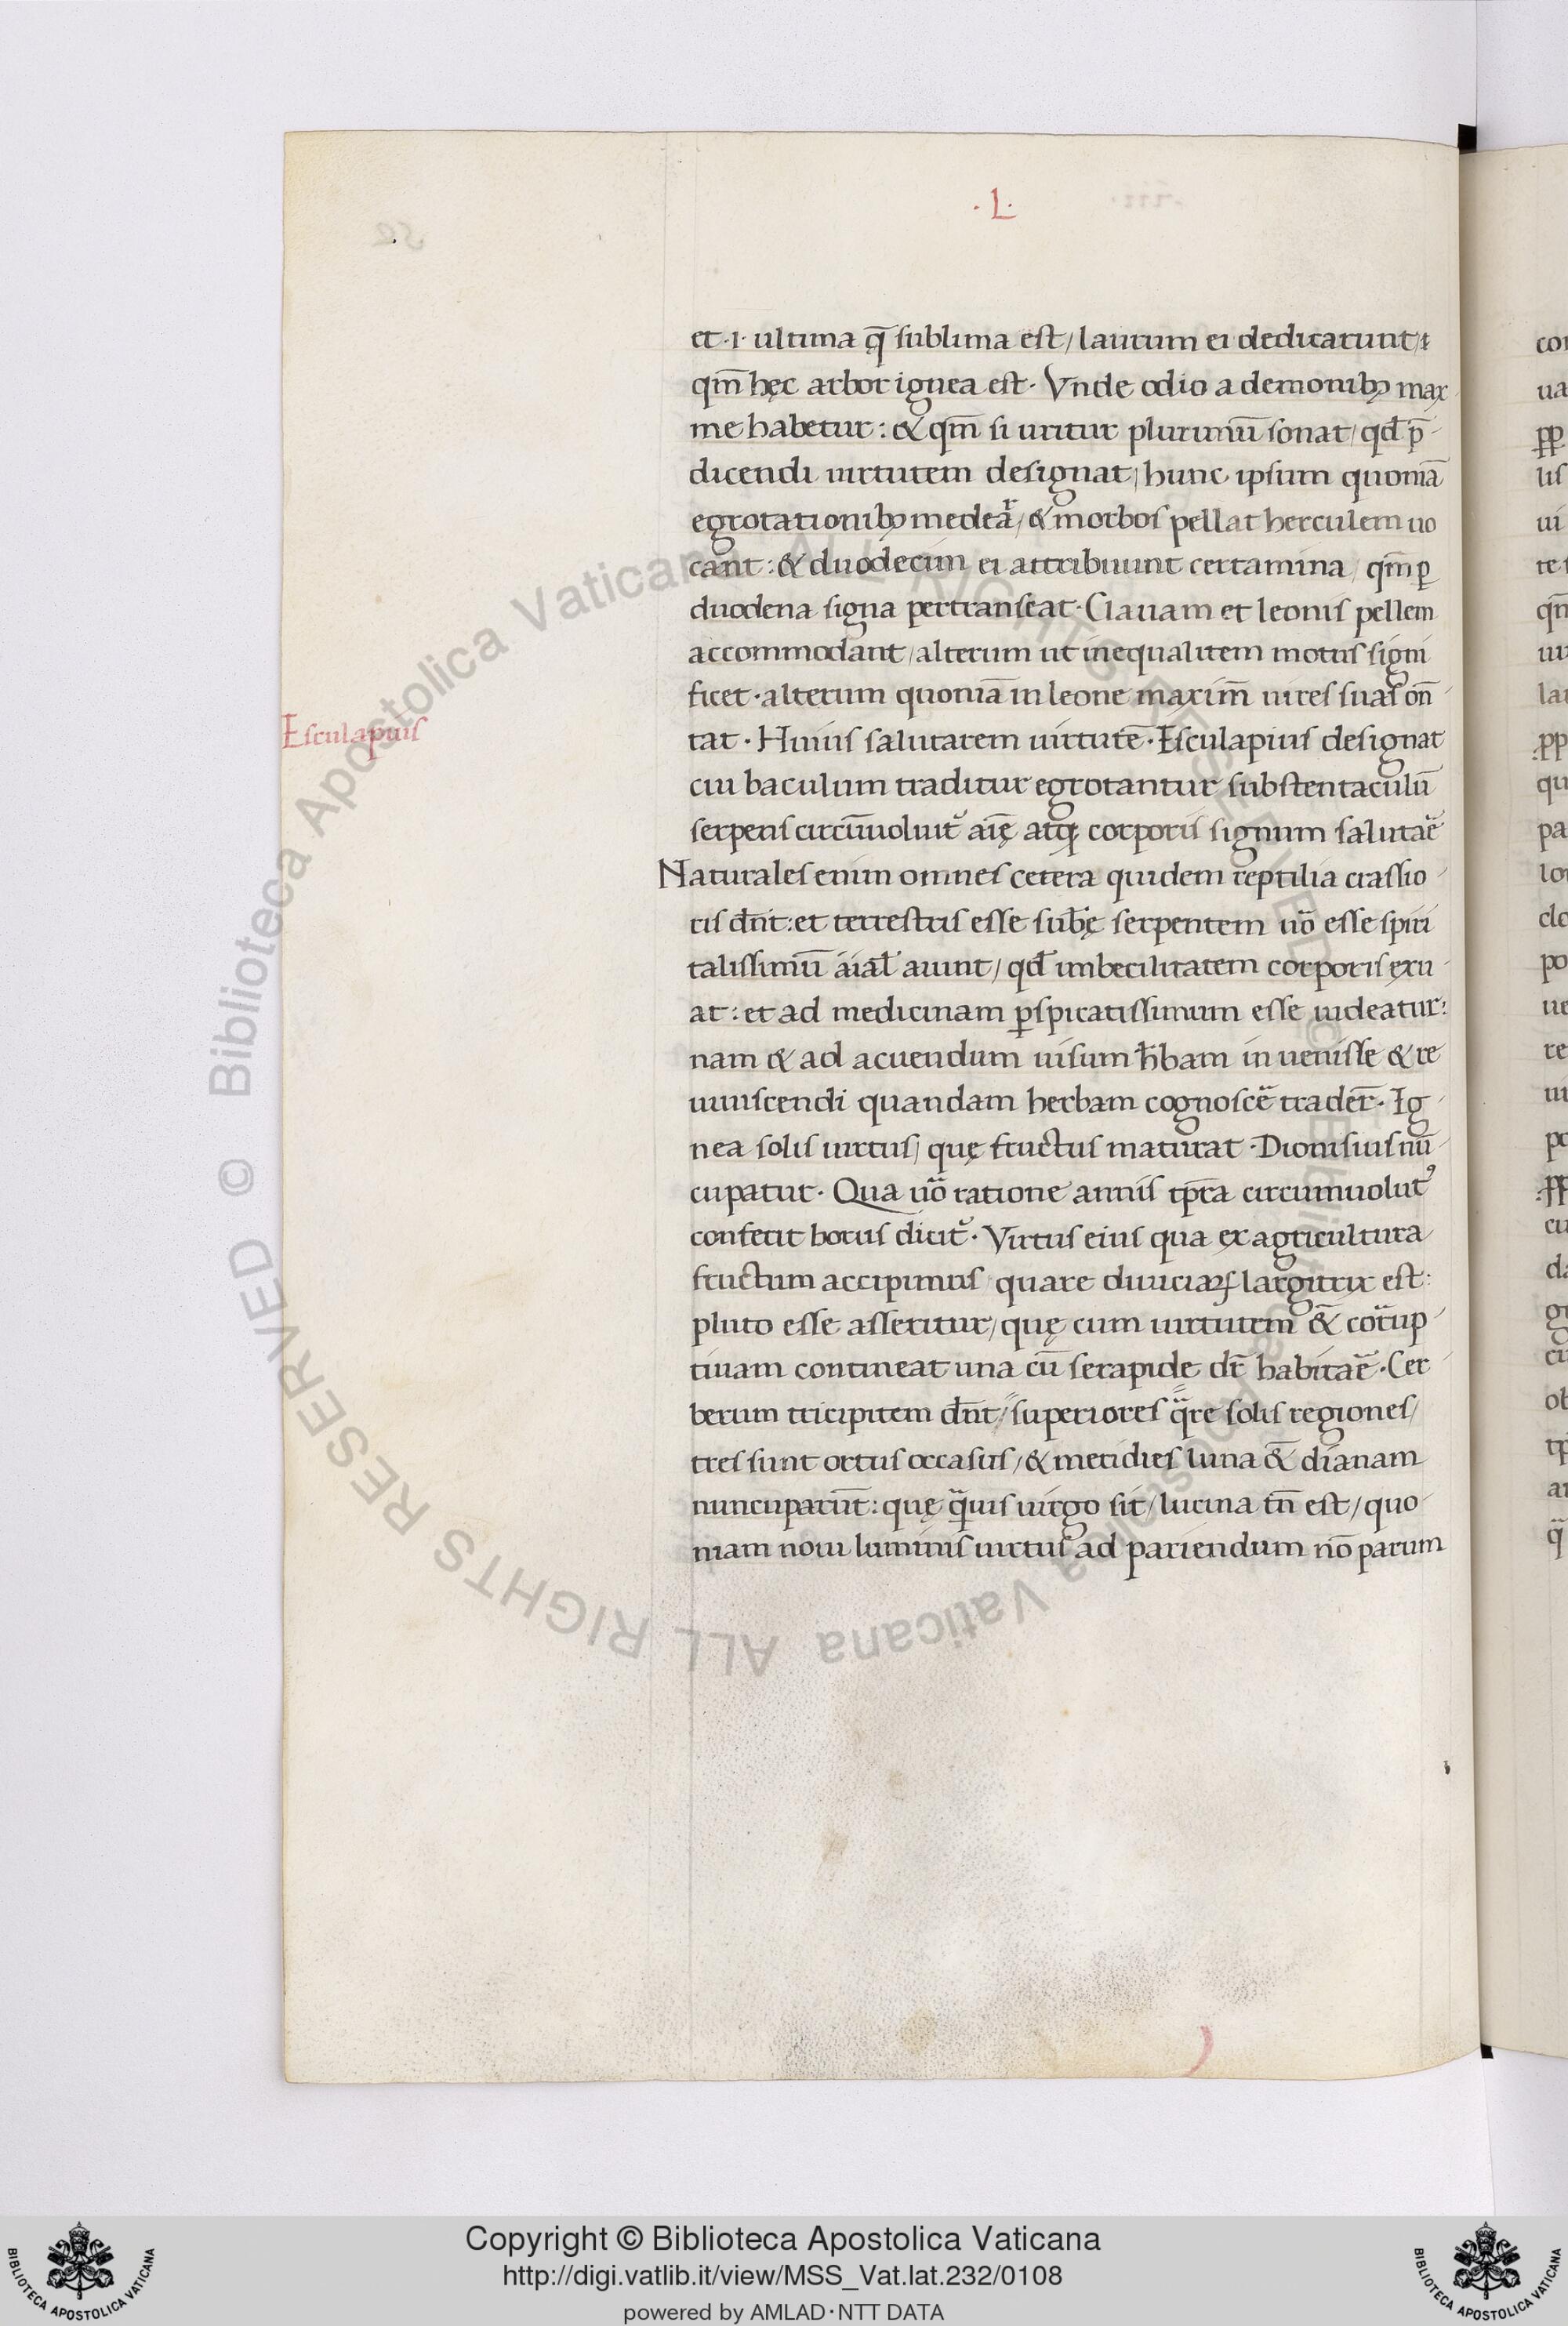 ·L·
et ·i· ultima q̄ sublima est / laurum ei dedicarunt :
qm̄ hęc arbor ignea est · Vnde odio a demonibꝫ max
me habetur : & qm̄ si uritur plurimū sonat / qd̄ p̄
dicendi uirtutem designat / hunc ipsum quoniā
egrotationibꝫ medeat̄ / & morbos pellat herculem uo
cant : & duodecim ei attribuunt certamina / qm̄ ꝑ
duodena signa pertranseat · Clauam et leonis pellem
accommodant / alterum ut inequalitem motus signi
ficet · alterum quoniā in leone maxim̄ uires suas on̄
tat · Huius salutarem uirtutē · Esculapius designat
Esculapius
cui baculum traditur egrotantur substentaculū
serpens circūuoluit᷑ aīę atqꝫ corporis signum salutar̄e
Naturales enim omnes cetera quidem reptilia crassio
ris dn̄t : et terrestris esse sub̄ę serpentem uō esse spiri
talissimū aīal̄ aiunt / qd̄ imbecilitatem corporis exu
at : et ad medicinam ꝑspicatissimum esse uideatur :
nam & ad acuendum uisum h̄bam in uenisse & re
uiuiscendi quandam herbam cognoscē trader̄ · Ig
nea solis uirtus / quę fructus maturat · Dionisius nū
cupatur · Qua uō ratione annis tp̄ra circumuolutꝰ
confecit horus dicit᷑ · Virtus eius qua ex agricultura
fructum accipimus quare diuiciaꝝ largitrix est :
pluto esse asseritur / quę cum uirtutem &̄ corrup
tiuam contineat una cū serapide dr̄ habitar̄e · Cer
berum tricipitem dn̄t // superiores q̄re solis regiones /
tres sunt ortus occasus / & meridies luna &̄ dianam
nuncuparūt : quę q̄uis uirgo sit / lucina tn̄ est / quo
niam noui luminis uirtus ad pariendum nō parum
Copyright © Biblioteca Apostolica Vaticana
http://digi.vatlib.it/view/MSS_Vat.lat.232/0108
powered by AMLAD·NTT DATA
© Biblioteca Apostolica Vaticana ALL RIGHTS RESERVED © Biblioteca Apostolica Vaticana ALL RIGHTS RESERVED
BIBLIOTECA APOSTOLICA VATICANA
BIBLIOTECA APOSTOLICA VATICANA